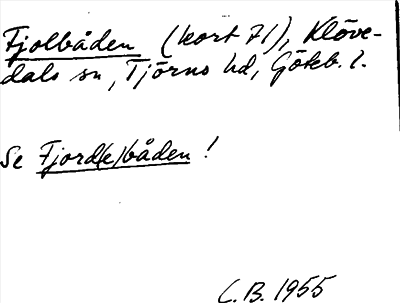 Fjolbåden (kort 71), Klöve-
dals sn, Tjörns hd, Göteb. l.
Se Fjord(e)båden!
C.B. 1955